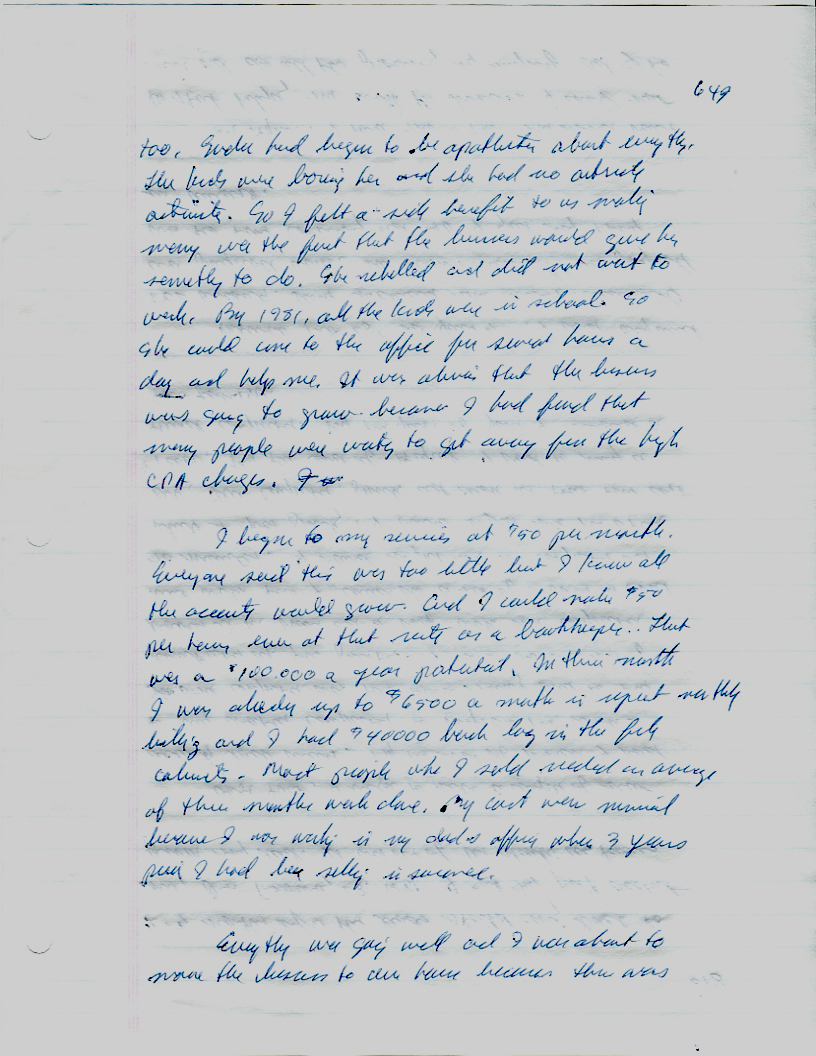 649
too. had begun to be apathetic about everythg.
The kids were boring her and she had no outside
activity. So I felt a side benefit to us making
money was the fact that the business would give her
somethg to do. She rebelled and did not want to
work. By 1981, all the kids were in school. So
she could come to the office for several hours a
day and help me. It was obvious that the business
was going to grow because I had found that
many people were waiting to get away from the high
CPA charges.
I began to my services at $50 per month.
Everyone said this was too little but I knew all
the accounts would grow. And I could make $50
per hour even at that rate as a bookkeeper.. That
was a $100.000 a year potential. In three month
I was already up to $6500 a month in repeat monthly
billing and I had $40000 back log in the file
cabinets. Most people who I sold needed an average
of three months work done. My cost were minimal
because I was working in my dad's office where 3 years
prior I had been selling insurance.
Everythg was going well and I was about to
move the business to our home because there was